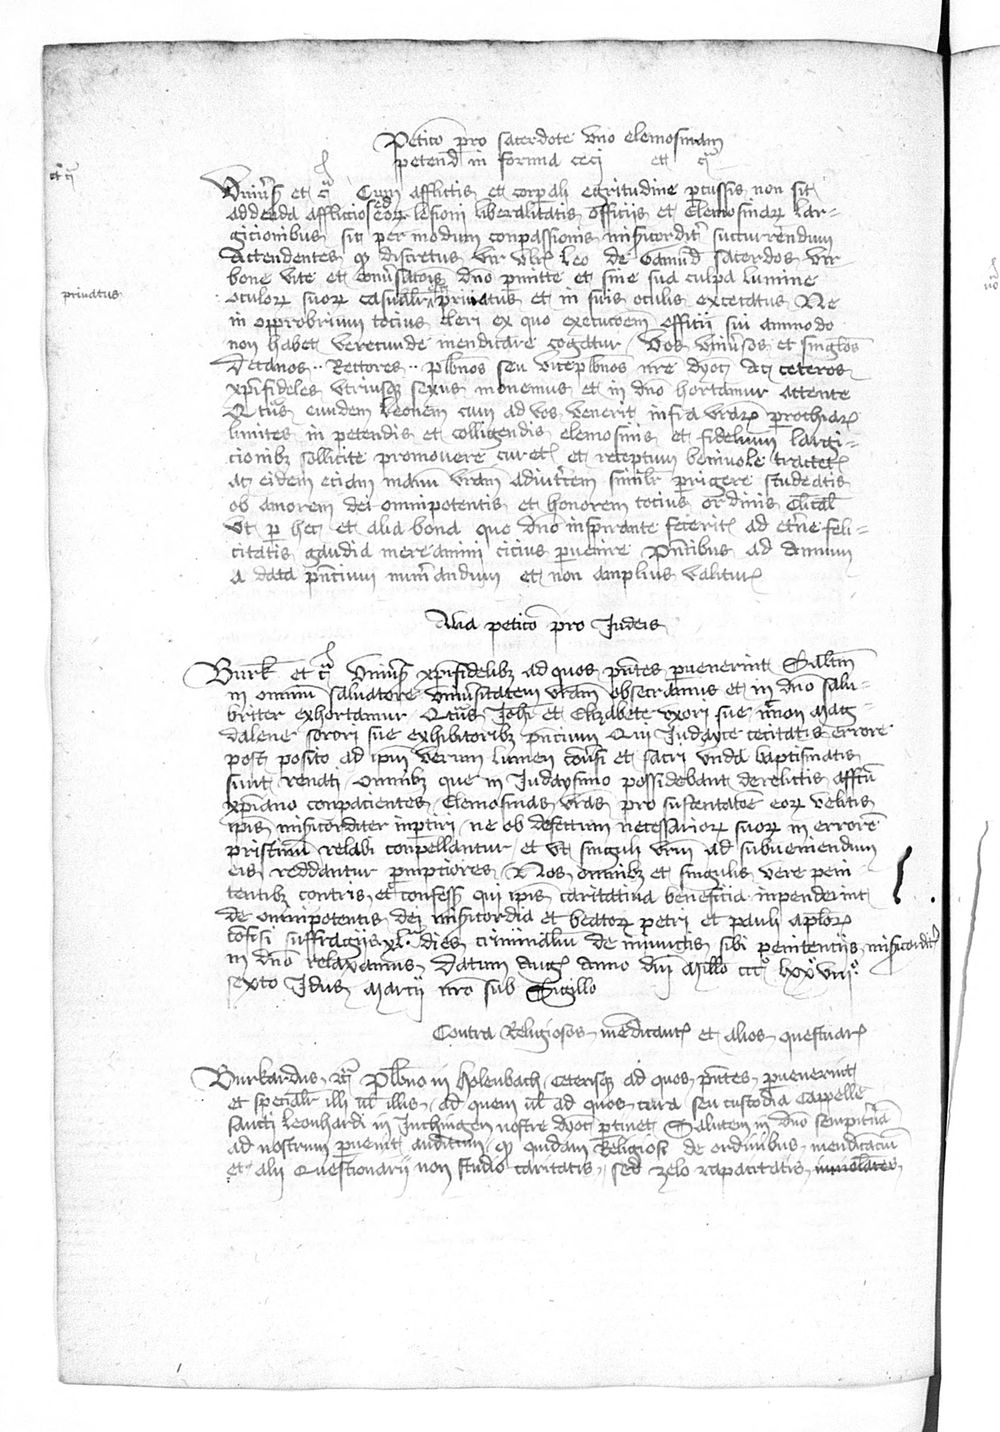 Peticō pro sacerdote uno elemosinam
petend in forma ceci et cͣ
et cͣ
Univͥsͥ et cͣ Cum afflictis et corpali egritudine pcussis non sit
addenda afflictio eorꝝ lesioni liberalitatis officiis et elemosinarꝝ lar=
gicionibus sit per modum conpassionis misͥicorditͥ succurrendum
Attendentes qꝫ discretus vir Leo de sacerdos vir
bone vite et conv̄sacōisqꝫ dn̄o pmitte et sine sua culpa lumine
privatus
oculorꝝ suorꝝ casualitͥ privatus et in suis oculis excecatus Ne
in opprobrium tocius cleri ex quo execucōem officii sui ammodo
non habet verecunde mendicare cogatur / Vos univͥsos et singlos
Decanos ·· Rectores ·· plb̄nos seu viceplb̄nos nr̄e dyoc̄ ac ceteros
xp̄ifideles utriusqꝫ sexus monemus et in dn̄o hortamur attente
Qtͣus eundem Leonem cum ad vos venerit infra vr̄arꝝ prochiarꝝ
limites in petendis et colligendis elemosinis et fidelium largi=
cionibꝫ sollicite promovere curetꝭ et receptum benivole tractetꝭ
ac eidem eciam manū vr̄am adiutͥcem similr̄ porrigere studeatis
ob amorem dei omnipotentis et honorem tocius ordinis clͥicaḹ
Ut p hec et alia bona que dn̄o inspirante feceritꝭ ad etͥne feli=
citatis gaudia mereamini cicius pvenire pn̄tibus ad annum
a data pn̄cium num̄andum et non amplius valiturꝭ
Alia peticō pro Judeis
Burk̄ et cͣ Univͥsͥ xp̄ifidelibꝫ ad quos pn̄tes pvenerint Saltm̄
in omniū salvatore univͥsitatem vr̄am obsecramus et in dn̄o salu=
briter exhortamur Qtͣus Joh̄i et Elizabete uxori sue nͨnon Mag=
dalene sorori sue exhibitoribꝫ pn̄cium Qui Judayce cecitatis errore
post posito ad ipm̄ verum lumen cōvͥsi et sacri unda baptismatis
sunt renati omnibꝫ que in Judaysmo possidebant derelictis affcū
xp̄iano conpacientes Elemosinas vr̄as pro sustentacōe eorꝝ velitis
ip̄is misͥicorditer inptiri / ne ob defectum necessariorꝝ suorꝝ in errorē
pristinū relabi conpellantur et ut singuli vr̄m ad subveniendum
eis reddantur pmpciores / Nos omnibꝫ et singulis vere peni
tentibꝫ contris et confessͥ qui ip̄is caritativa beneficia inpenderint
de omnipotentis dei misͥicordia et beatorꝝ petri et pauli ap̄lorꝝ
cōfisi suffragiis xl.ͣ dies criminaliū de iniunctis sibi penitentiis misͥicorditͥ
in dn̄o relaxamus Datum Augͣ anno dn̄i Millō cccͦ lxxͦ viiiͦ
sexto Idus Marcii nr̄o sub Sigillo
Contra Religiosos mēdicantꝭ et alios questuarꝭ
Burkardus, etͨ Plb̄no in Holenbach, Ceterisqꝫ ad quos, pn̄tes, pvenerint
et specialitͥ illi vl̄ illis, ad quem vl̄ ad quos, cura seu custodia Cappelle
sancti Leonhardi in Inchingen nostre dyoc̄ ptinet, Salutem in dn̄o sempitͥnā
ad nostrum pvenit auditum, qꝫ quidam Religiosͥ de ordinibus, mendicaciū
et, alii Questionarii non studio caritatis, sed zelo rapacitatis,